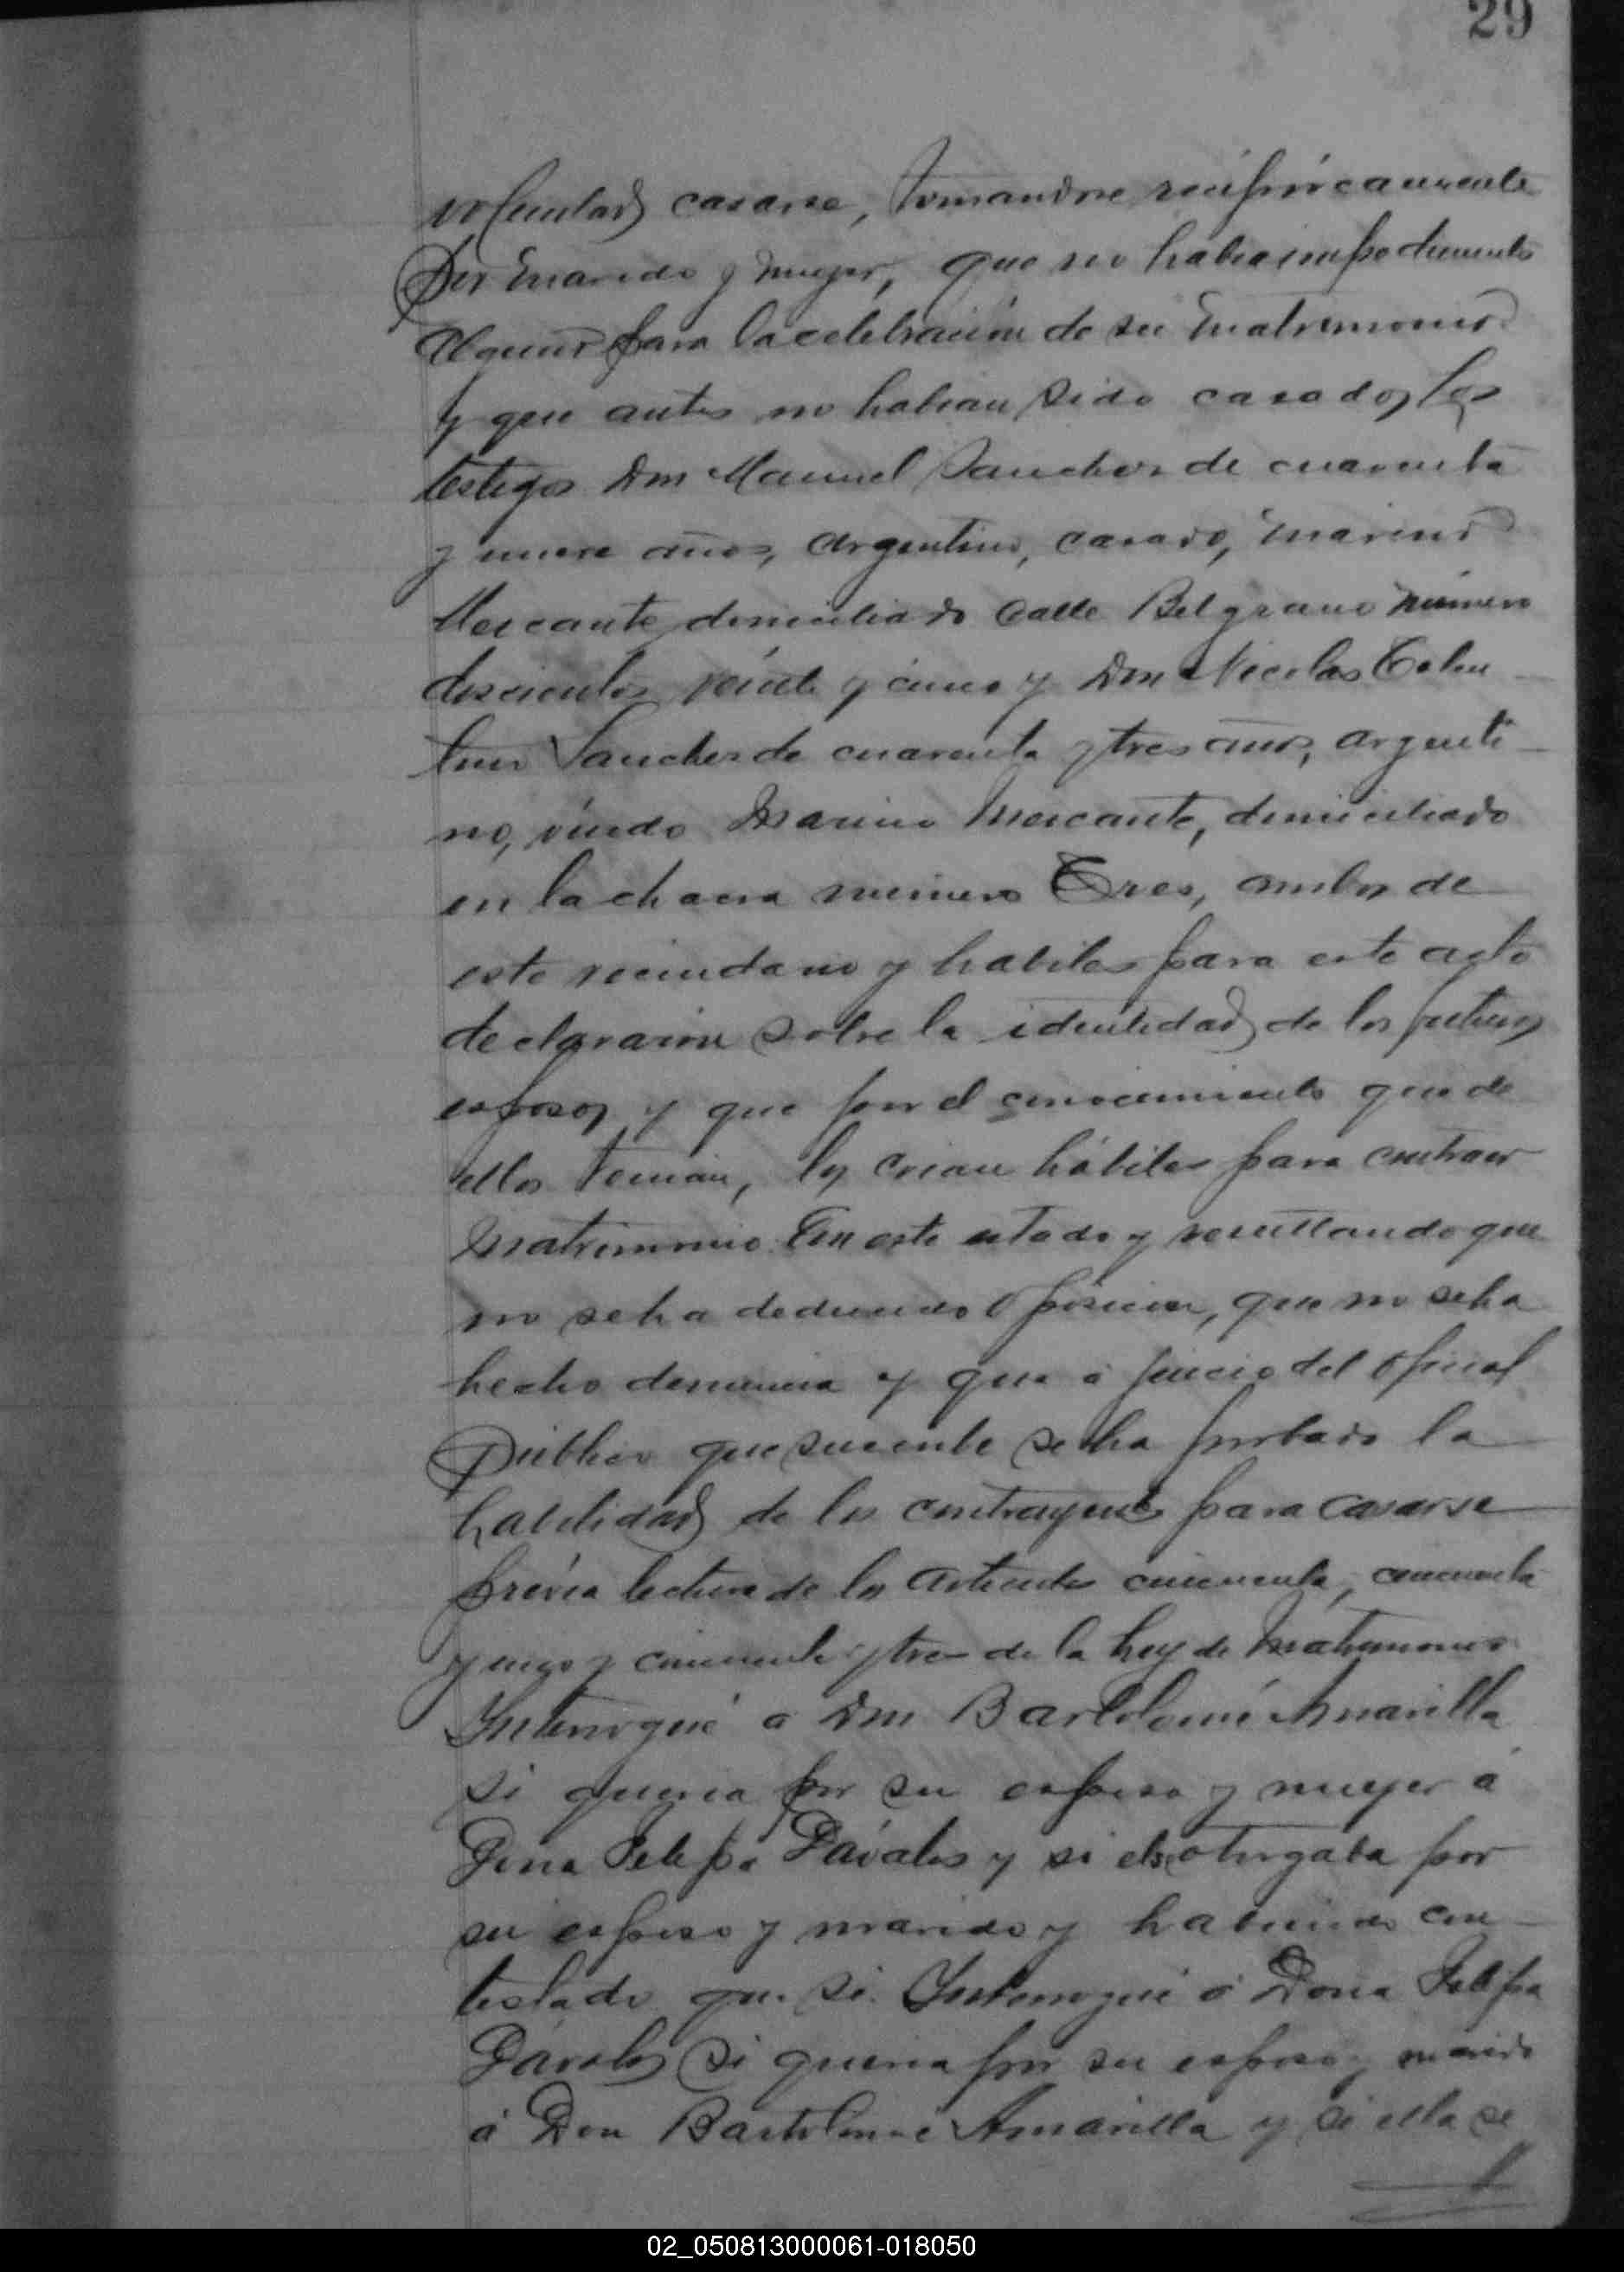 29
voluntad casarse, tomandose recíprocamente
Por marido y muger, que no habia impedimento
alguno para la celebración de su matrimonio
y que antes no habian sido casados, los
testigos Don Manuel Sanchez de cuarenta
y nueve años, argentino, casado, marino
Mercante domiciliado calle Belgrano número
doscientos veinte y cinco y Don Nicolas Tolen
tino Sanchez de cuarenta y tres años, argenti
no, viudo Marino Mercante, domiciliado
en la chacra numero Tres, ambos de
este vecindario y habiles para este acto
declararon sobre la identidad de los futuros
esposos y que por el conocimiento que de
ellos tenian, los creian hábiles para contraer
Matrimonio. En este estado y resultando que
no se ha deducido oposicion, que no se ha
hecho denuncia y que á juicio del oficial
Público que suscribe se ha probado la
habilidad de los contrayentes para casarse
prévia lectura de los articulos cincuenta, cincuenta
y uno y cincuenta y tres de la Ley de Matrimonio
Interrogué a Don Bartolomé Amarilla
si queria por su esposa y muger á
Dona Felipa Dávalos y si el se otorgaba por
su esposo y marido y habiendo con
testado que si. Interrogué á Dona Felipa
Dávalos si queria por su esposo y marido
á Don Bartolomé Amarilla y si ella se
02_050813000061-018050